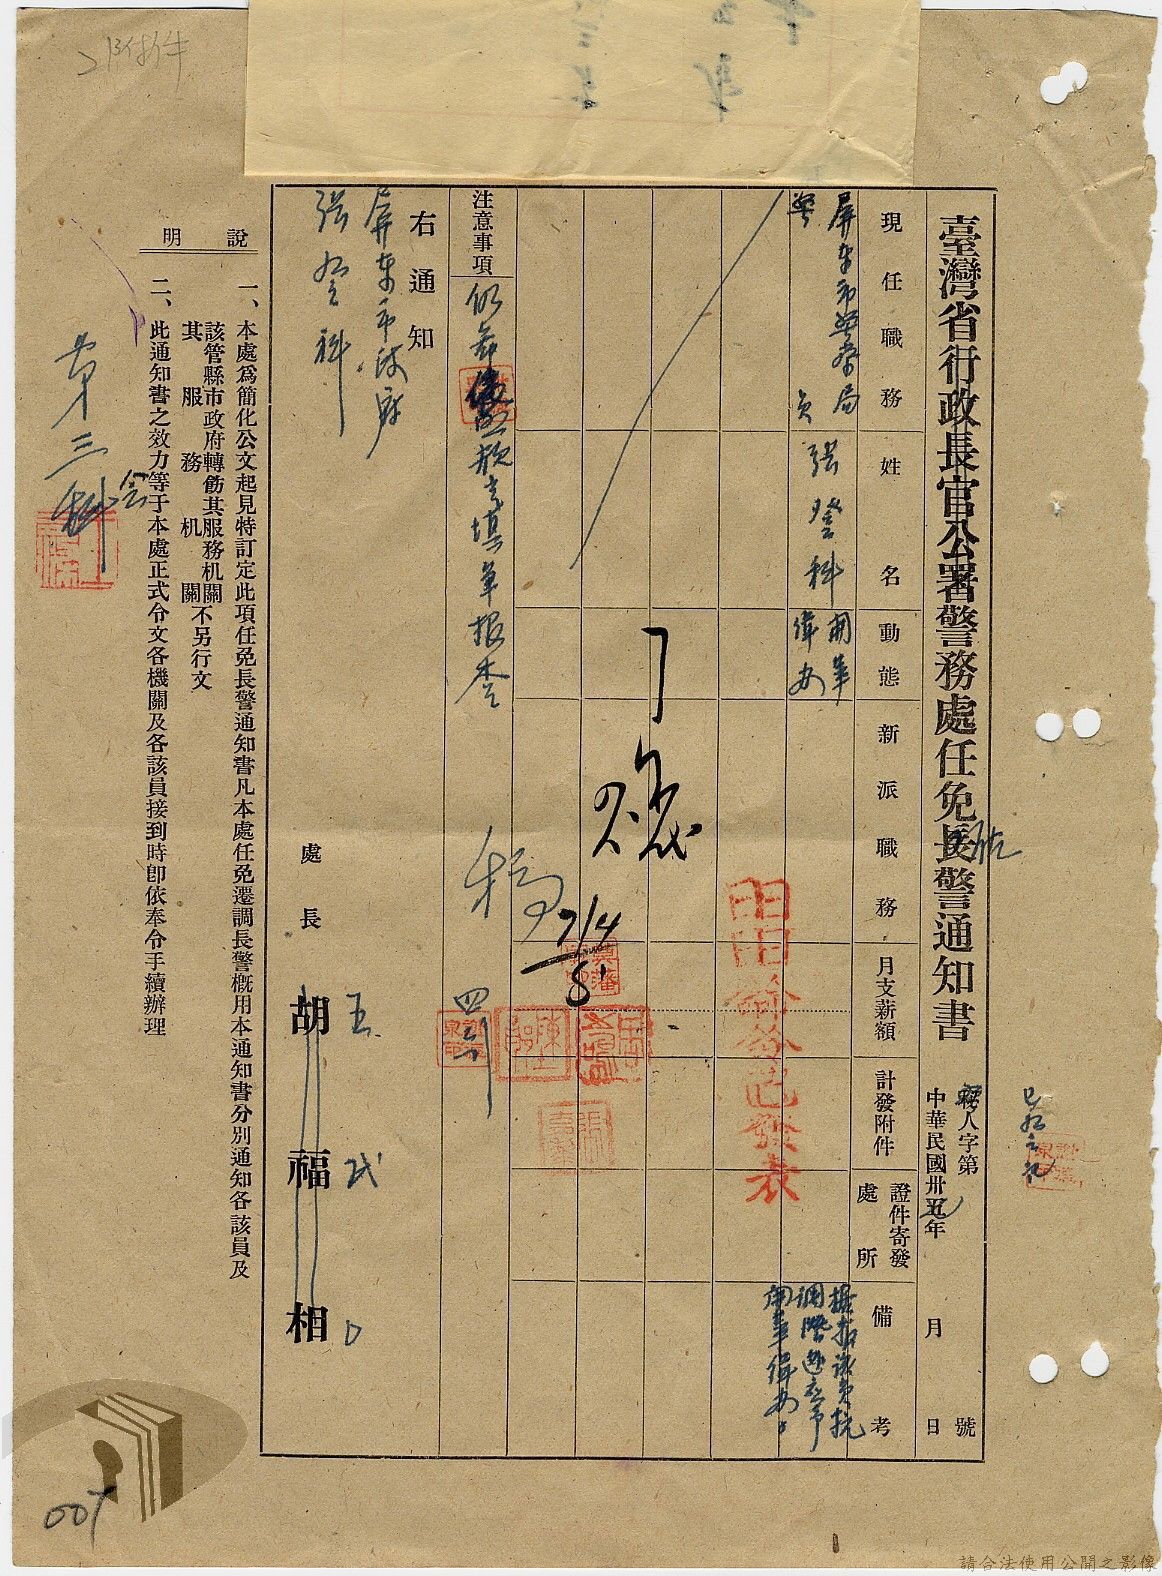 附件
臺灣省行政長官公署警務處任免長警通知書
人字第
號
中華民國卅五年
月
日
現任職務
姓名
動態
新派職務
月支薪額
計發附件
證件寄發處所
備考
屏東市警察局
警員
張登科
開革
緝办
據報該員抗
調潛逃應予
開革緝办
注意事項
右通知
屏東市政府
張登科
處長
胡福相
說明
一、本處為簡化公文起見特訂定此項任免長警通知書凡本處任免遷調長警概用本通知書分別通知各該員及
該管縣市政府轉飭其服務机關
其服務机關
不另行文
二、此通知書之效力等于本處正式令文各機關及各該員接到時即依奉令手續辦理
第三科
會
稿
7/4
已發表
007
請合法使用公開之影像